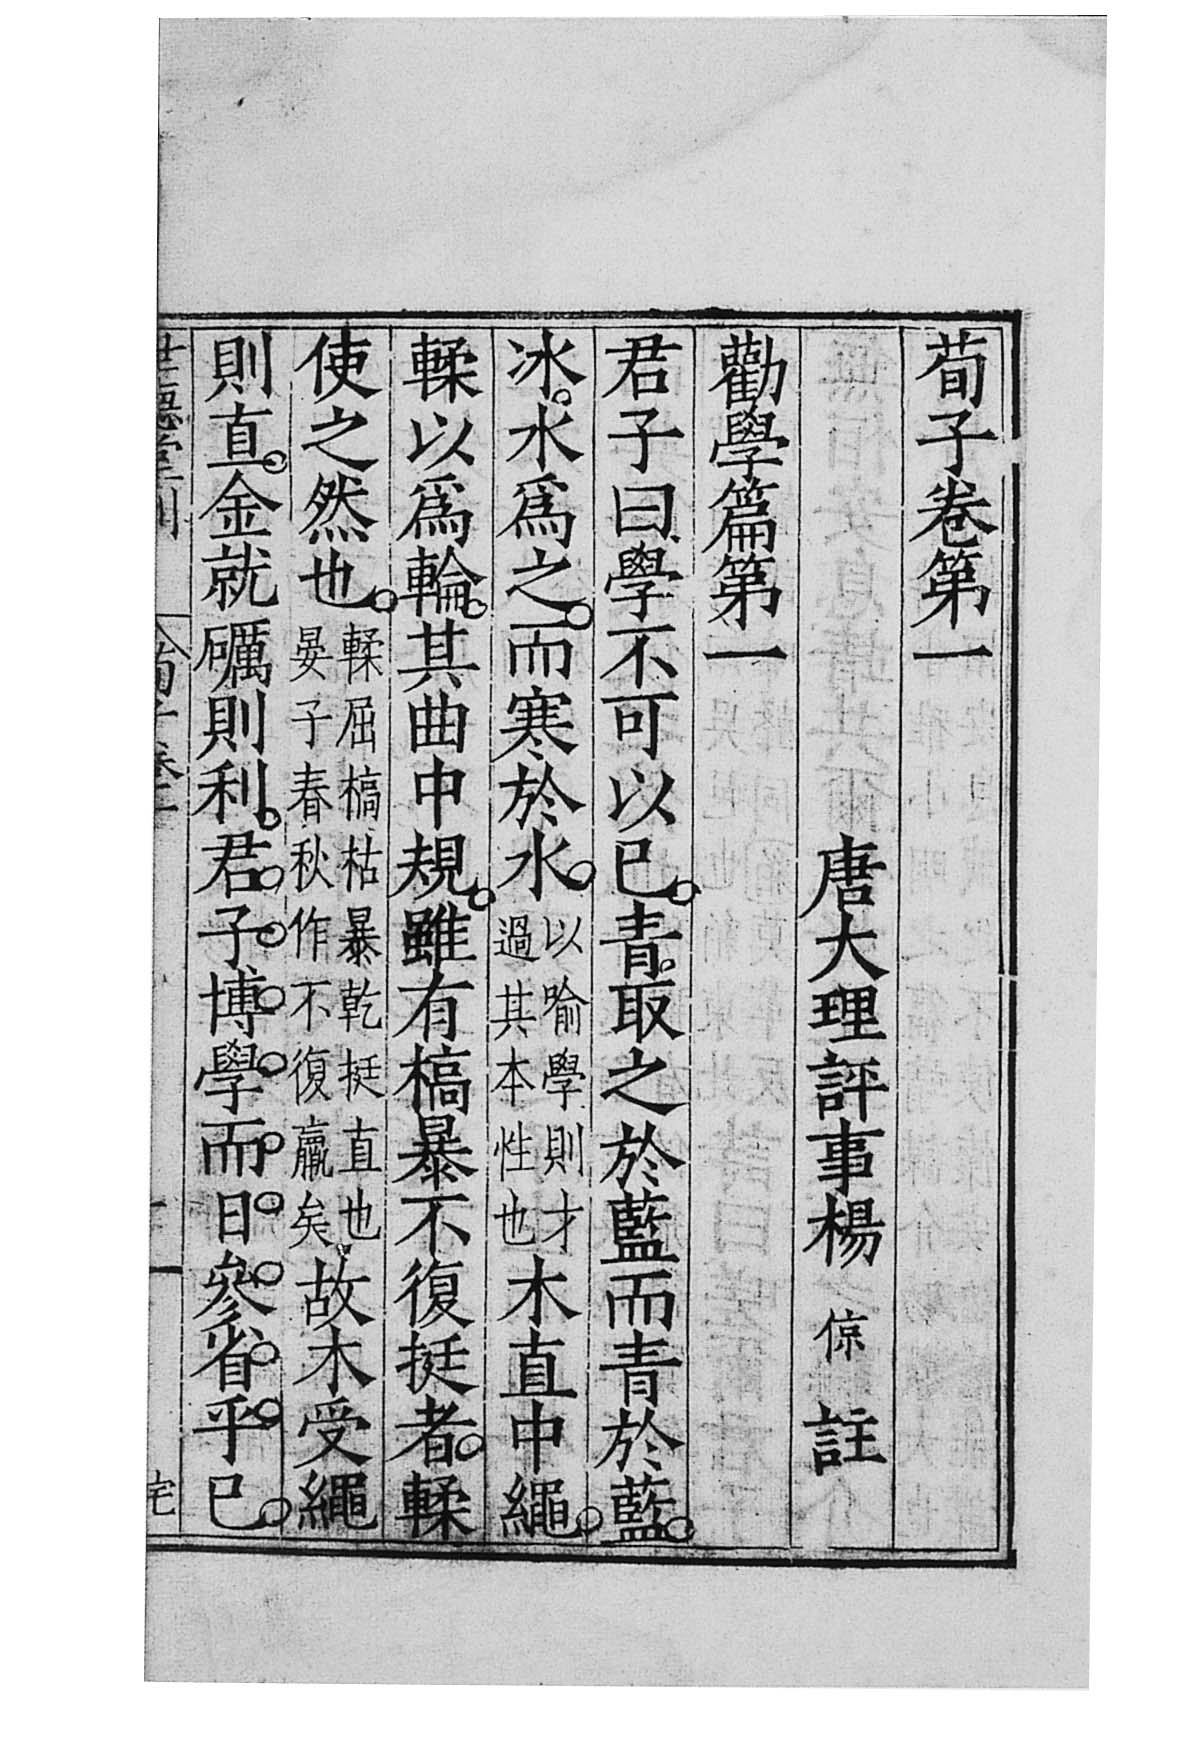 荀子卷第一
唐大理評事楊倞註
勸學篇第一
君子曰學不可以已青取之於藍而青於藍
冰水爲之而寒於水以喻學則才過其本性也木直中繩
輮以爲輪其曲中規雖有槁暴不復挺者輮
使之然也輮屈槁枯暴乾挺直也晏子春秋作不復羸矣故木受繩
則直金就礪則利君子博學而日參省乎已
世德堂刊
荀子卷一
一